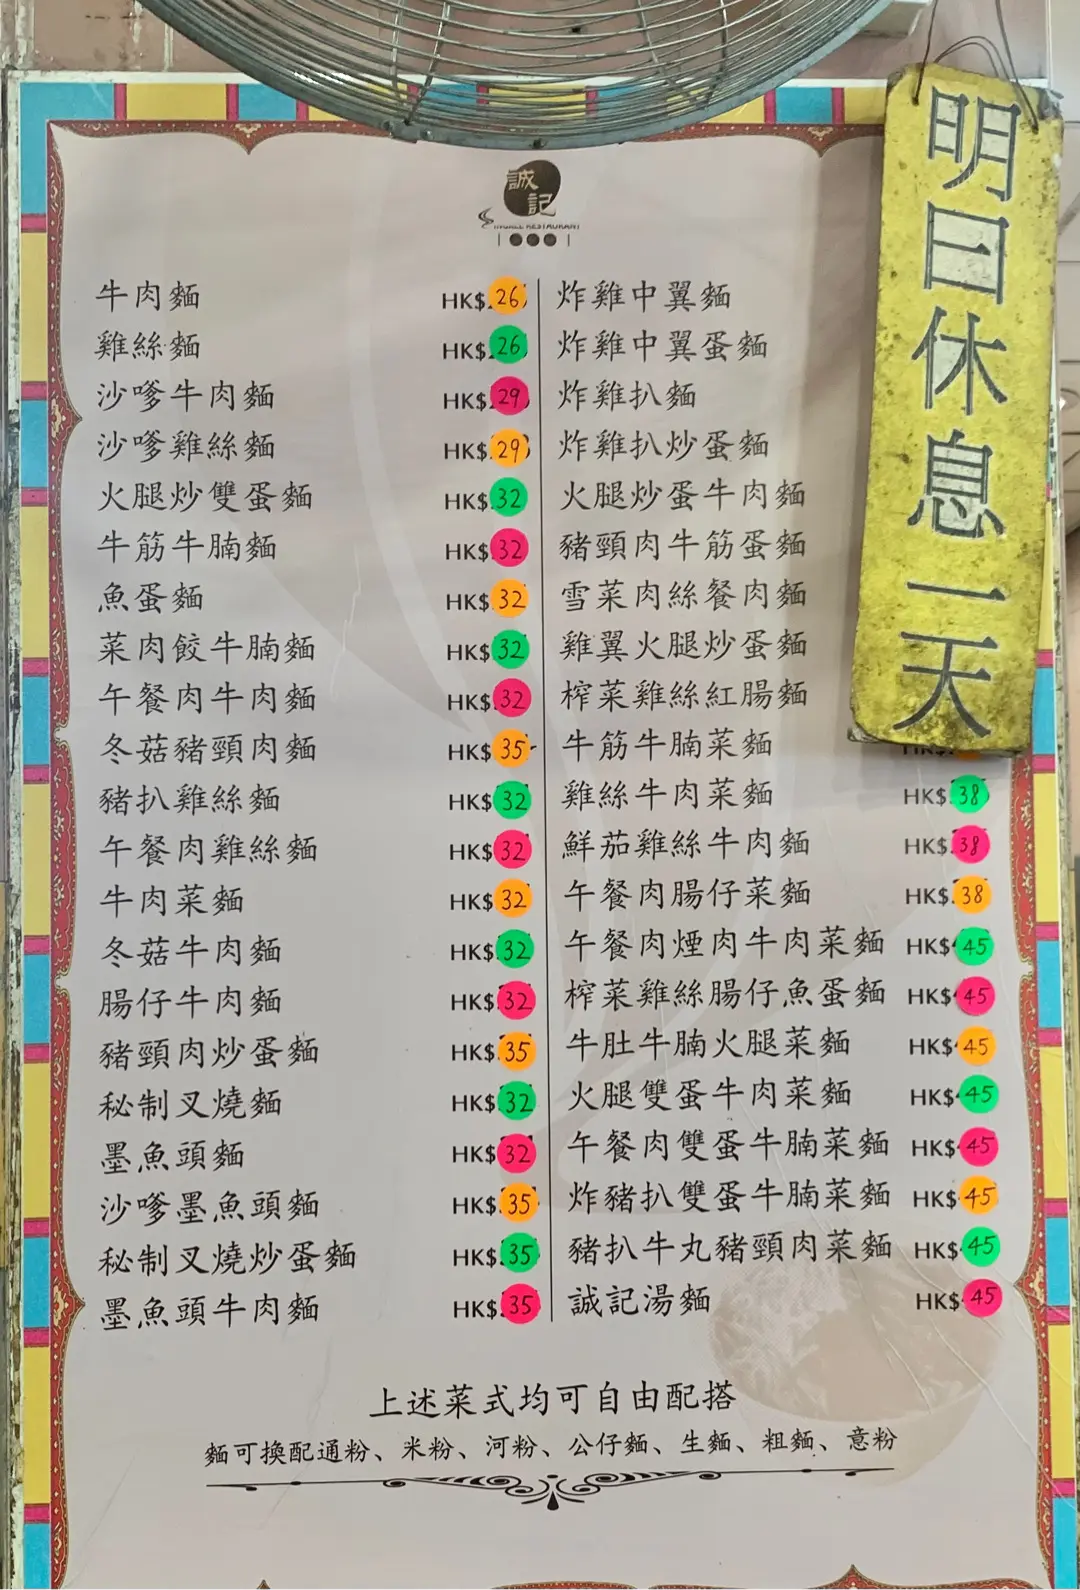 誠記
RESTAURANT
明日休息一天
牛肉麵 HK$26
雞絲麵 HK$26
沙嗲牛肉麵 HK$29
沙嗲雞絲麵 HK$29
火腿炒雙蛋麵 HK$32
牛筋牛腩麵 HK$32
魚蛋麵 HK$32
菜肉餃牛腩麵 HK$32
午餐肉牛肉麵 HK$32
冬菇豬頸肉麵 HK$35
豬扒雞絲麵 HK$32
午餐肉雞絲麵 HK$32
牛肉菜麵 HK$32
冬菇牛肉麵 HK$32
腸仔牛肉麵 HK$32
豬頸肉炒蛋麵 HK$35
秘制叉燒麵 HK$32
墨魚頭麵 HK$32
沙嗲墨魚頭麵 HK$35
秘制叉燒炒蛋麵 HK$35
墨魚頭牛肉麵 HK$35
炸雞中翼麵
炸雞中翼蛋麵
炸雞扒麵
炸雞扒炒蛋麵
火腿炒蛋牛肉麵
豬頸肉牛筋蛋麵
雪菜肉絲餐肉麵
雞翼火腿炒蛋麵
榨菜雞絲紅腸麵
牛筋牛腩菜麵
雞絲牛肉菜麵 HK$38
鮮茄雞絲牛肉麵 HK$38
午餐肉腸仔菜麵 HK$38
午餐肉煙肉牛肉菜麵 HK$45
榨菜雞絲腸仔魚蛋麵 HK$45
牛肚牛腩火腿菜麵 HK$45
火腿雙蛋牛肉菜麵 HK$45
午餐肉雙蛋牛腩菜麵 HK$45
炸豬扒雙蛋牛腩菜麵 HK$45
豬扒牛丸豬頸肉菜麵 HK$45
誠記湯麵 HK$45
上述菜式均可自由配搭
麵可換配通粉、米粉、河粉、公仔麵、生麵、粗麵、意粉